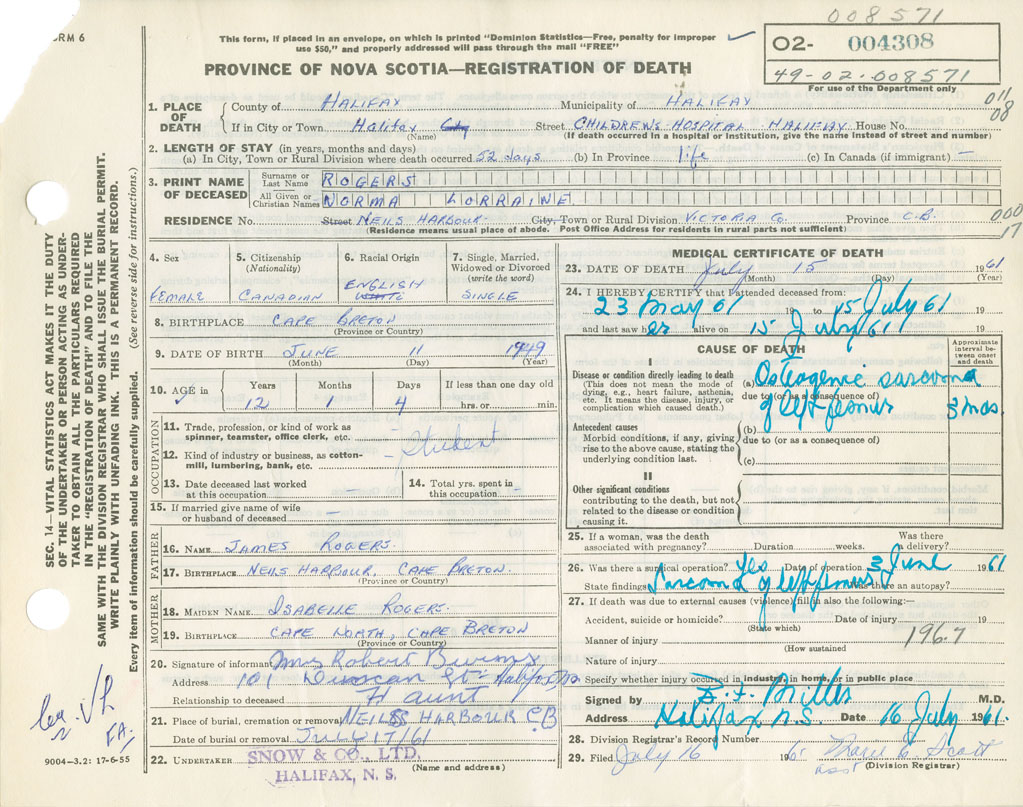 008571
FORM 6
This form, if placed in an envelope, on which is printed "Dominion Statistics—Free, penalty for improper
use $50," and properly addressed will pass through the mail "FREE"
02- 004308
49-02-008571
For use of the Department only
PROVINCE OF NOVA SCOTIA—REGISTRATION OF DEATH
011
08
1. PLACE OF DEATH
County of HALIFAX Municipality of HALIFAX
If in City or Town Halifax City (Name) Street CHILDREN'S HOSPITAL HALIFAX House No.
(If death occurred in a hospital or institution, give the name instead of street and number)
2. LENGTH OF STAY (in years, months and days)
(a) In City, Town or Rural Division where death occurred 52 days (b) In Province life (c) In Canada (if immigrant) —
3. PRINT NAME OF DECEASED
Surname or Last Name ROGERS
All Given or Christian Names NORMA LORRAINE
RESIDENCE No. Street NEILS HARBOUR City, Town or Rural Division VICTORIA Co. Province C.B.
(Residence means usual place of abode. Post Office Address for residents in rural parts not sufficient)
000
17
4. Sex FEMALE
5. Citizenship (Nationality) CANADIAN
6. Racial Origin ENGLISH WHITE
7. Single, Married, Widowed or Divorced (write the word) SINGLE
8. BIRTHPLACE CAPE BRETON
(Province or Country)
9. DATE OF BIRTH JUNE 11 1949
(Month) (Day) (Year)
10. AGE in Years Months Days If less than one day old
12 1 4 hrs. or min.
OCCUPATION
11. Trade, profession, or kind of work as spinner, teamster, office clerk, etc. — Student
12. Kind of industry or business, as cotton-mill, lumbering, bank, etc. —
13. Date deceased last worked at this occupation
14. Total yrs. spent in this occupation —
15. If married give name of wife or husband of deceased —
FATHER
16. NAME JAMES ROGERS.
17. BIRTHPLACE NEILS HARBOUR, CAPE BRETON.
(Province or Country)
MOTHER
18. MAIDEN NAME ISABELLE ROGERS.
19. BIRTHPLACE CAPE NORTH, CAPE BRETON
(Province or Country)
20. Signature of informant Mrs Robert Burns
Address 101 Duncan St. Halifax, NS
Relationship to deceased aunt
21. Place of burial, cremation or removal NEILS HARBOUR CB
Date of burial or removal JULY 17/61
22. UNDERTAKER SNOW & CO., LTD.
HALIFAX, N. S.
(Name and address)
MEDICAL CERTIFICATE OF DEATH
23. DATE OF DEATH July 15 1961
(Month) (Day) (Year)
24. I HEREBY CERTIFY that I attended deceased from:
23 May 61 19 to 15 July 61 19
and last saw her alive on 15 July 61 19
CAUSE OF DEATH
Approximate interval between onset and death
I
Disease or condition directly leading to death
(This does not mean the mode of dying, e.g., heart failure, asthenia, etc. It means the disease, injury, or complication which caused death.)
(a) Osteogenic sarcoma
due to (or as a consequence of)
of left femur 3 mos.
Antecedent causes
Morbid conditions, if any, giving rise to the above cause, stating the underlying condition last.
(b)
due to (or as a consequence of)
(c)
II
Other significant conditions
contributing to the death, but not related to the disease or condition causing it.
25. If a woman, was the death associated with pregnancy? Duration weeks. Was there a delivery?
26. Was there a surgical operation? Yes Date of operation 3 June 1961
State findings Sarcoma of left femur Was there an autopsy?
27. If death was due to external causes (violence) fill in also the following:—
Accident, suicide or homicide? Date of injury 19
(State which)
Manner of injury 196.7
(How sustained
Nature of injury
Specify whether injury occurred in industry, in home, or in public place
Signed by M.D.
Address Halifax N.S. Date 16 July 1961.
28. Division Registrar's Record Number
29. Filed July 16 196 Marie C. Scott
asst (Division Registrar)
SEC. 14—VITAL STATISTICS ACT MAKES IT THE DUTY
OF THE UNDERTAKER OR PERSON ACTING AS UNDER-
TAKER TO OBTAIN ALL THE PARTICULARS REQUIRED
IN THE "REGISTRATION OF DEATH" AND TO FILE THE
SAME WITH THE DIVISION REGISTRAR WHO SHALL ISSUE THE BURIAL PERMIT.
WRITE PLAINLY WITH UNFADING INK. THIS IS A PERMANENT RECORD.
Every item of information should be carefully supplied. (See reverse side for instructions.)
9004—3.2: 17-6-55